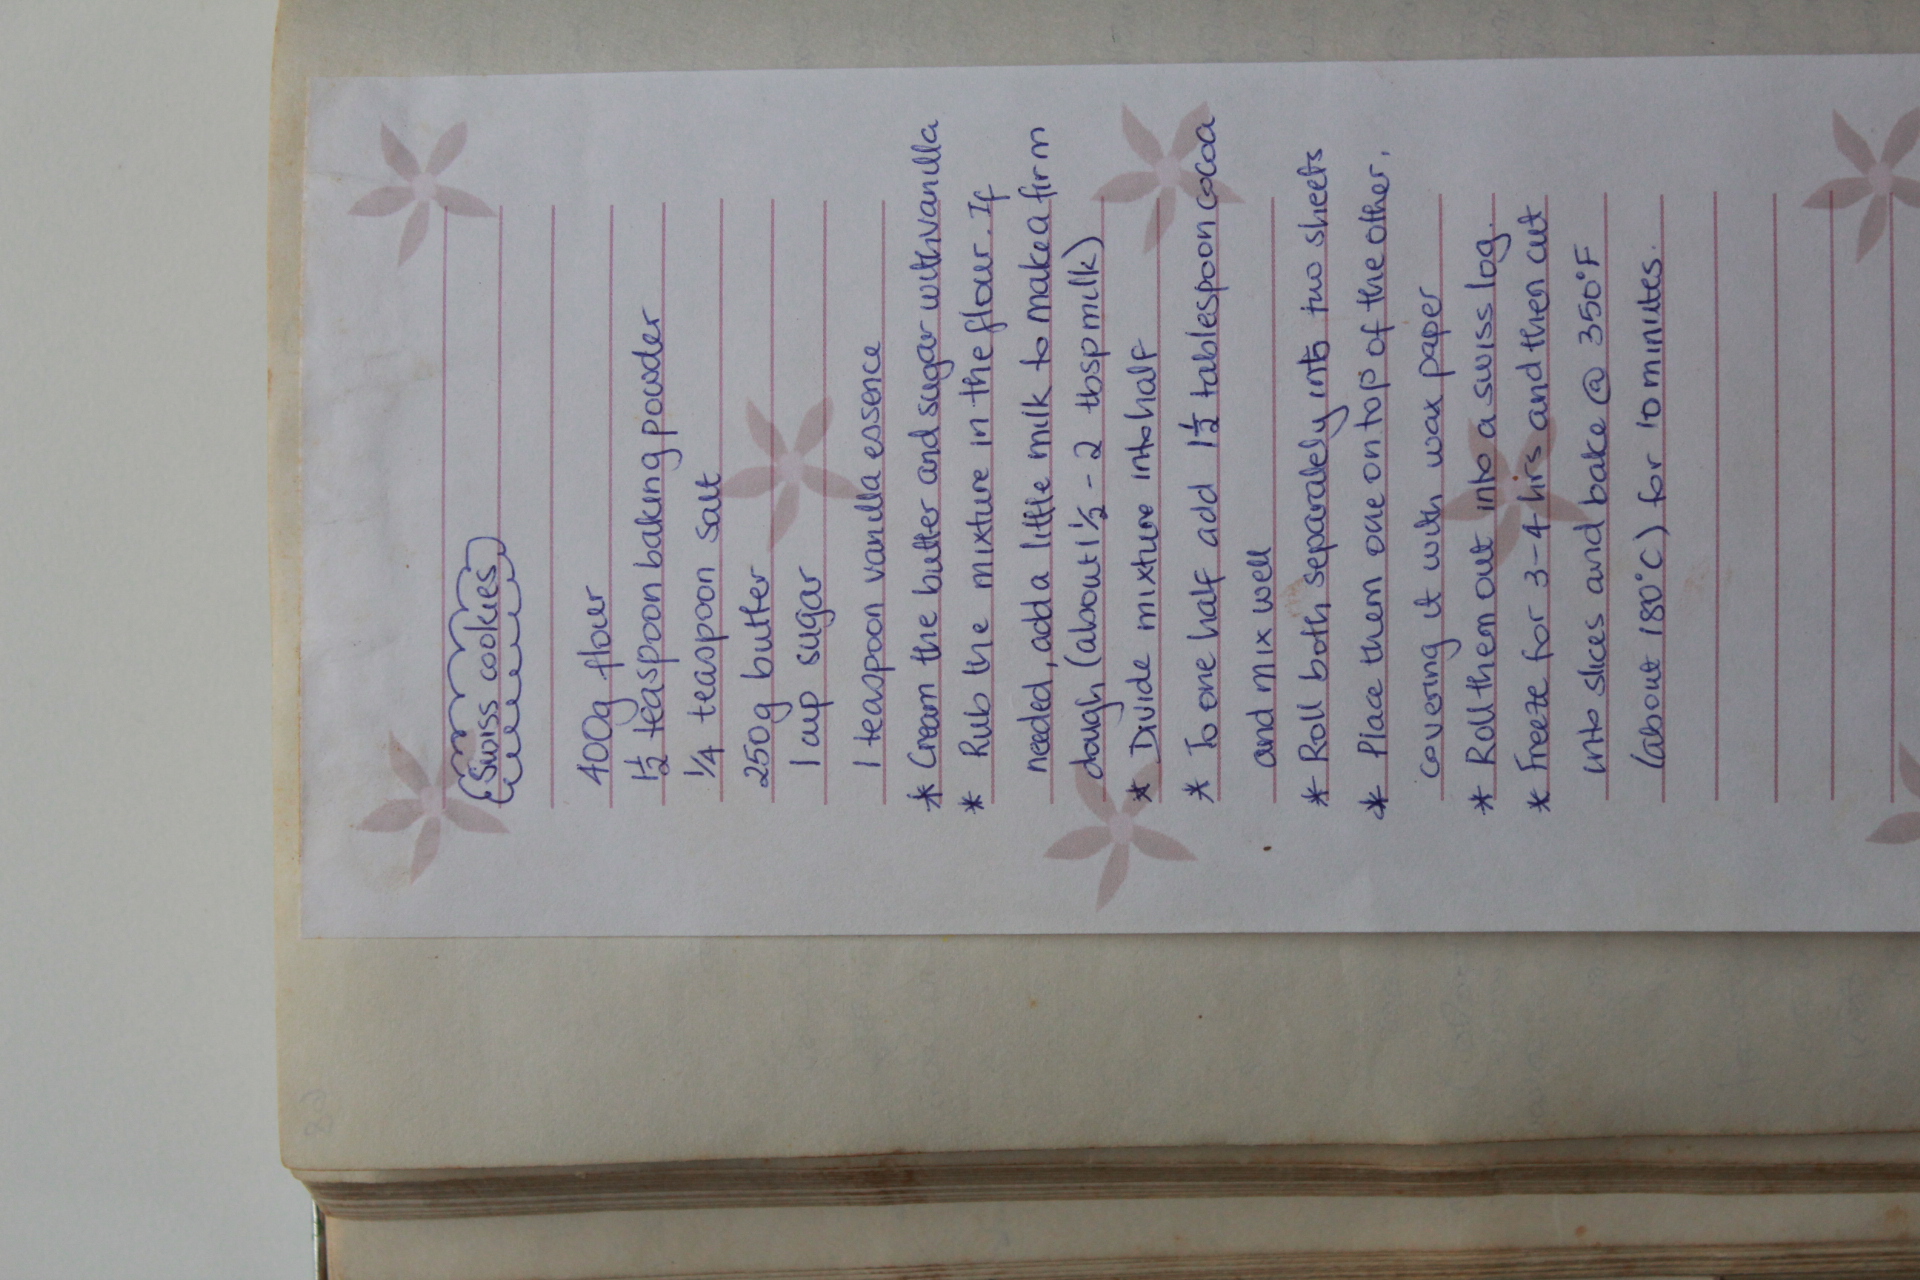 Swiss cookies
400g flour
1½ teaspoon baking powder
1/4 teaspoon salt
250g butter
1 cup sugar
1 teaspoon vanilla essence
* Cream the butter and sugar with vanilla
* Rub the mixture in the flour. If
needed, add a little milk to make a firm
dough (about 1½ - 2 tbsp milk)
* Divide mixture into half
* To one half add 1½ tablespoon cocoa
and mix well
* Roll both separately into two sheets
* Place them one on top of the other,
covering it with wax paper
* Roll them out into a swiss log.
* Freeze for 3-4 hrs and then cut
into slices and bake @ 350°F
(about 180°C) for 10 minutes.